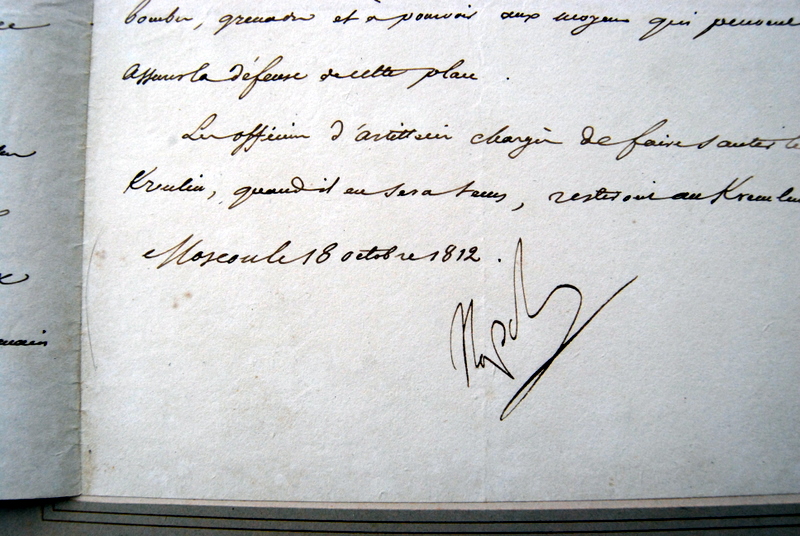 ce
bombes, grenades et à pouvoir aux moyens qui peuvent
assurer la défense de cette place.
Les officiers d'artillerie chargés de faire sauter le
Kremlin, quand il en sera tems, resteront au Kremlin
Moscou le 18 octobre 1812.
Napol